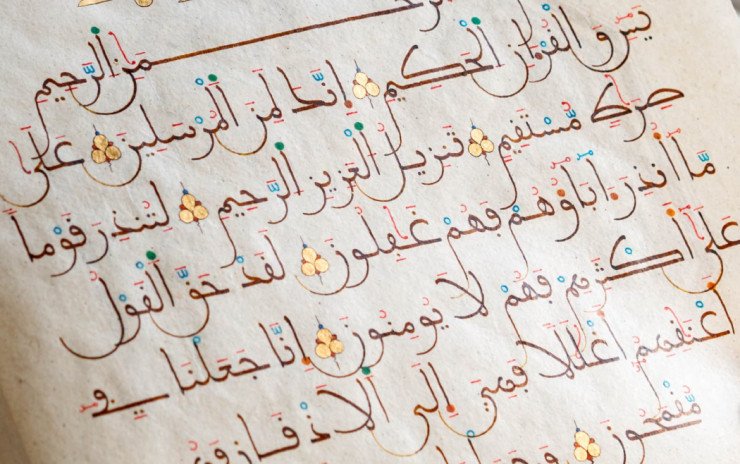 الرحمن الرحيم
يس والقرءان الحكيم إنك لمن المرسلين على
صرط مستقيم تنزيل العزيز الرحيم لتنذر قوما
ما أنذر ءاباؤهم فهم غفلون لقد حق القول
على أكثرهم فهم لا يومنون إنا جعلنا في
أعنقهم أغللا فهي إلى الاذقان فهم
مقمحون